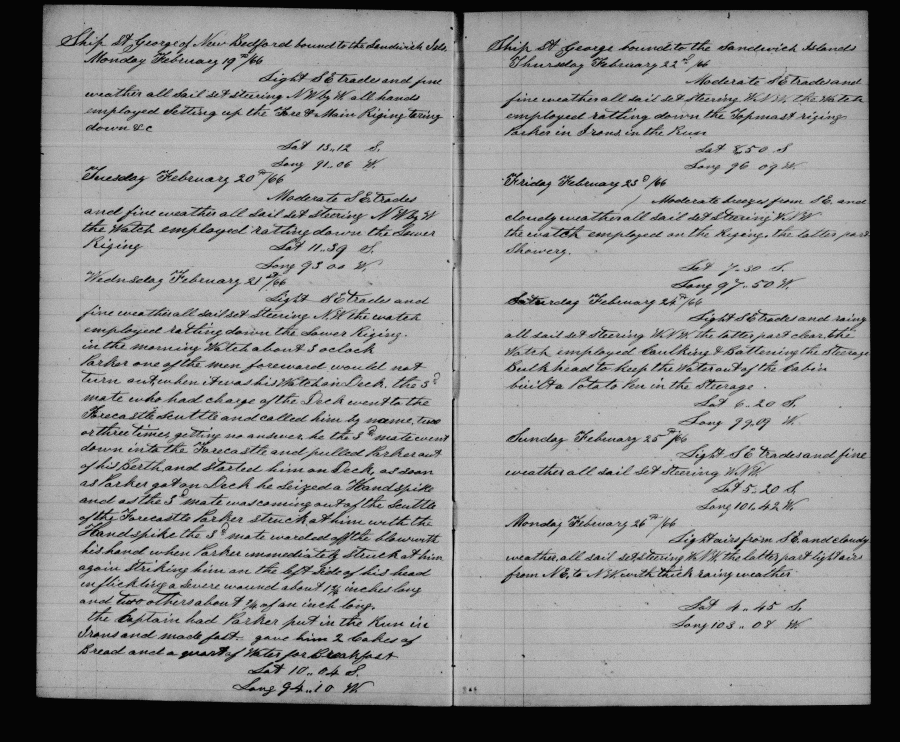 Ship St George of New Bedford bound to the Sandwich Isls
Monday February 19th/66
Light S E trades and fine
weather all sail set steering N W by W all hands
employed Setting up the Fore & Main Riging taring
down &c
Lat 13..12 S.
Long 91..06 W.
Tuesday February 20th/66
Moderate S E trades
and fine weather all sail set steering N W by W
the Watch employed ratling down the Lower
Riging Lat 11..39 S.
Long 93 00 W.
Wednsday February 21st/66
Light S E trades and
fine weather all sail set Steering N W the watch
employed ratling down the Lower Riging.
in the morning Watch about 3 oclock
Parker one of the men foreward would not
turn out when it was his Watch on Deck. the 3d
mate who had charge of the Deck went to the
Forecastle Scuttle and called him by name, two
or three times, getting no answer. he the 3d mate went
down into the Forecastle and pulled Parker out
of his Berth, and Started him on Deck, as soon
as Parker got on Deck he Seized a Handspike
and as the 3d mate was coming out of the Scuttle
of the Forecastle Parker struck at him with the
Handspike the 3d mate warded off the blow with
his hand when Parker immediately Struck at him
again Striking him on the left Side of his head
inflickting a severe wound about 1¾ inches long
and two others about ¾ of an inch long.
the Captain had Parker put in the Run in
Irons and made fast - gave him 2 Cakes of
Bread and a quart of Water for Breakfast
Lat 10..04 S.
Long 94..10 W.
Ship St George bound to the Sandwich Islands
Thursday February 22d/66
Moderate S E trades and
fine weather all sail set Steering W.N.W. the Watch
employed ratling down the Topmast riging
Parker in Irons in the Run
Lat 8.50 S
Long 96 09 W.
Friday February 23d/66
Moderate breezes from S E. and
cloudy weather all sail set Steering W N W
the watch employed on the Riging. the latter part
Showery.
Lat 7..30 S.
Long 97..50 W.
Saturday February 24th/66
Light S E trades and rainy
all sail set Steering W.N.W. the latter part clear, the
Watch employed Caulking & Battening the Steerage
Bulkhead to keep the Water out of the Cabin
built a Potato Pen in the Steerage.
Lat 6..20 S.
Long 99.09 W.
Sunday February 25th/66
Light S E trades and fine
weather all sail set steering W.N.W.
Lat 5..20 S.
Long 101,42 W.
Monday February 26th/66
Light airs from S E and cloudy
weather, all sail set, steering W.N.W. the latter part light airs
from N E, to N.W. with thick rainy weather
Lat 4..45 S.
Long 103..08 W.